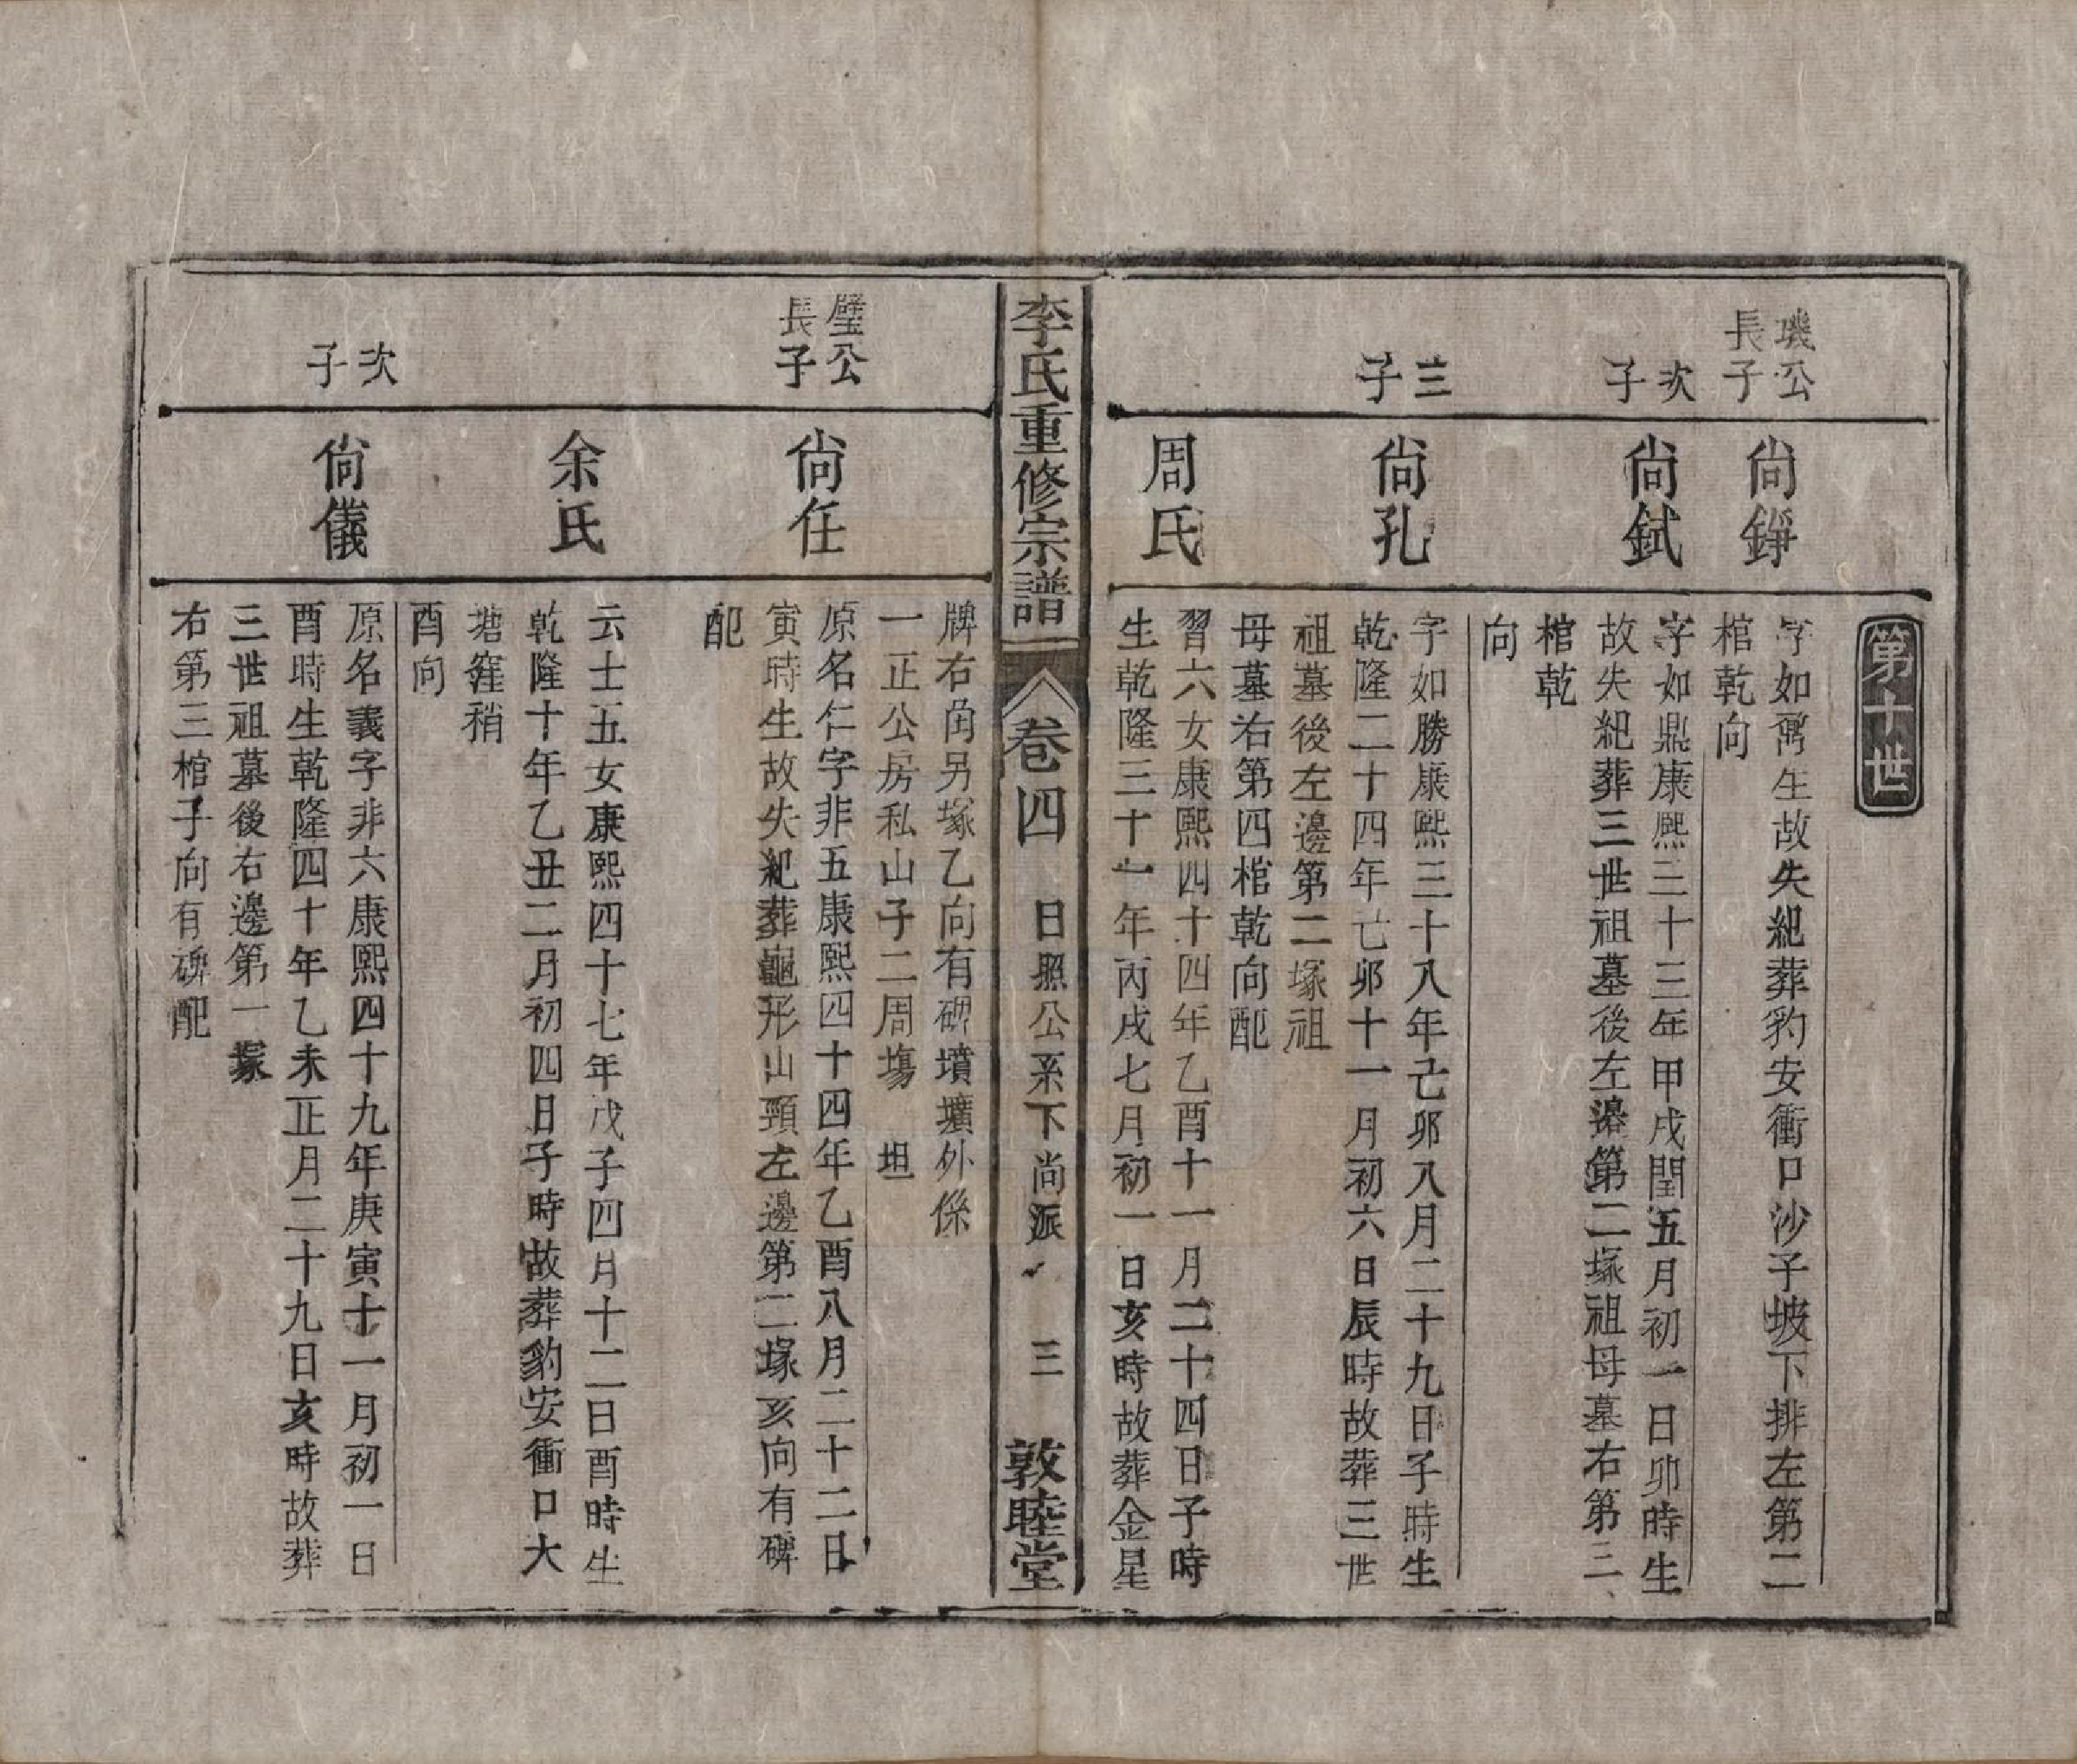 第十世
璣公
長子
尙錚
字如鼐生故失紀葬豹安衝口沙子坡下排左第二
棺乾向
次
子
尙鉽
字如鼎康熙三十三年甲戌閏五月初一日卯時生
故失紀葬三世祖墓後左邊第二塚祖母墓右第三
棺乾
向
三
子
尙孔
字如勝康熙三十八年己卯八月二十九日子時生
乾隆二十四年己卯十一月初六日辰時故葬三世
祖墓後左邊第二塚祖
母墓右第四棺乾向配
周氏
習六女康熙四十四年乙酉十一月二十四日子時
生乾隆三十一年丙戌七月初一日亥時故葬金星
李氏重修宗譜 卷四 日照公系下尚派 三 敦睦堂
牌右角另塚乙向有碑墳壙外係
一正公房私山子二周塲 坦
璧公
長子
尙任
原名仁字非五康熙四十四年乙酉八月二十二日
寅時生故失紀葬龜形山頸左邊第二塚亥向有碑
配
余氏
云士五女康熙四十七年戊子四月十二日酉時生
乾隆十年乙丑二月初四日子時故葬豹安衝口大
塘窪稍
酉向
次
子
尙儀
原名義字非六康熙四十九年庚寅十一月初一日
酉時生乾隆四十年乙未正月二十九日亥時故葬
三世祖墓後右邊第一塚
右第三棺子向有碑配